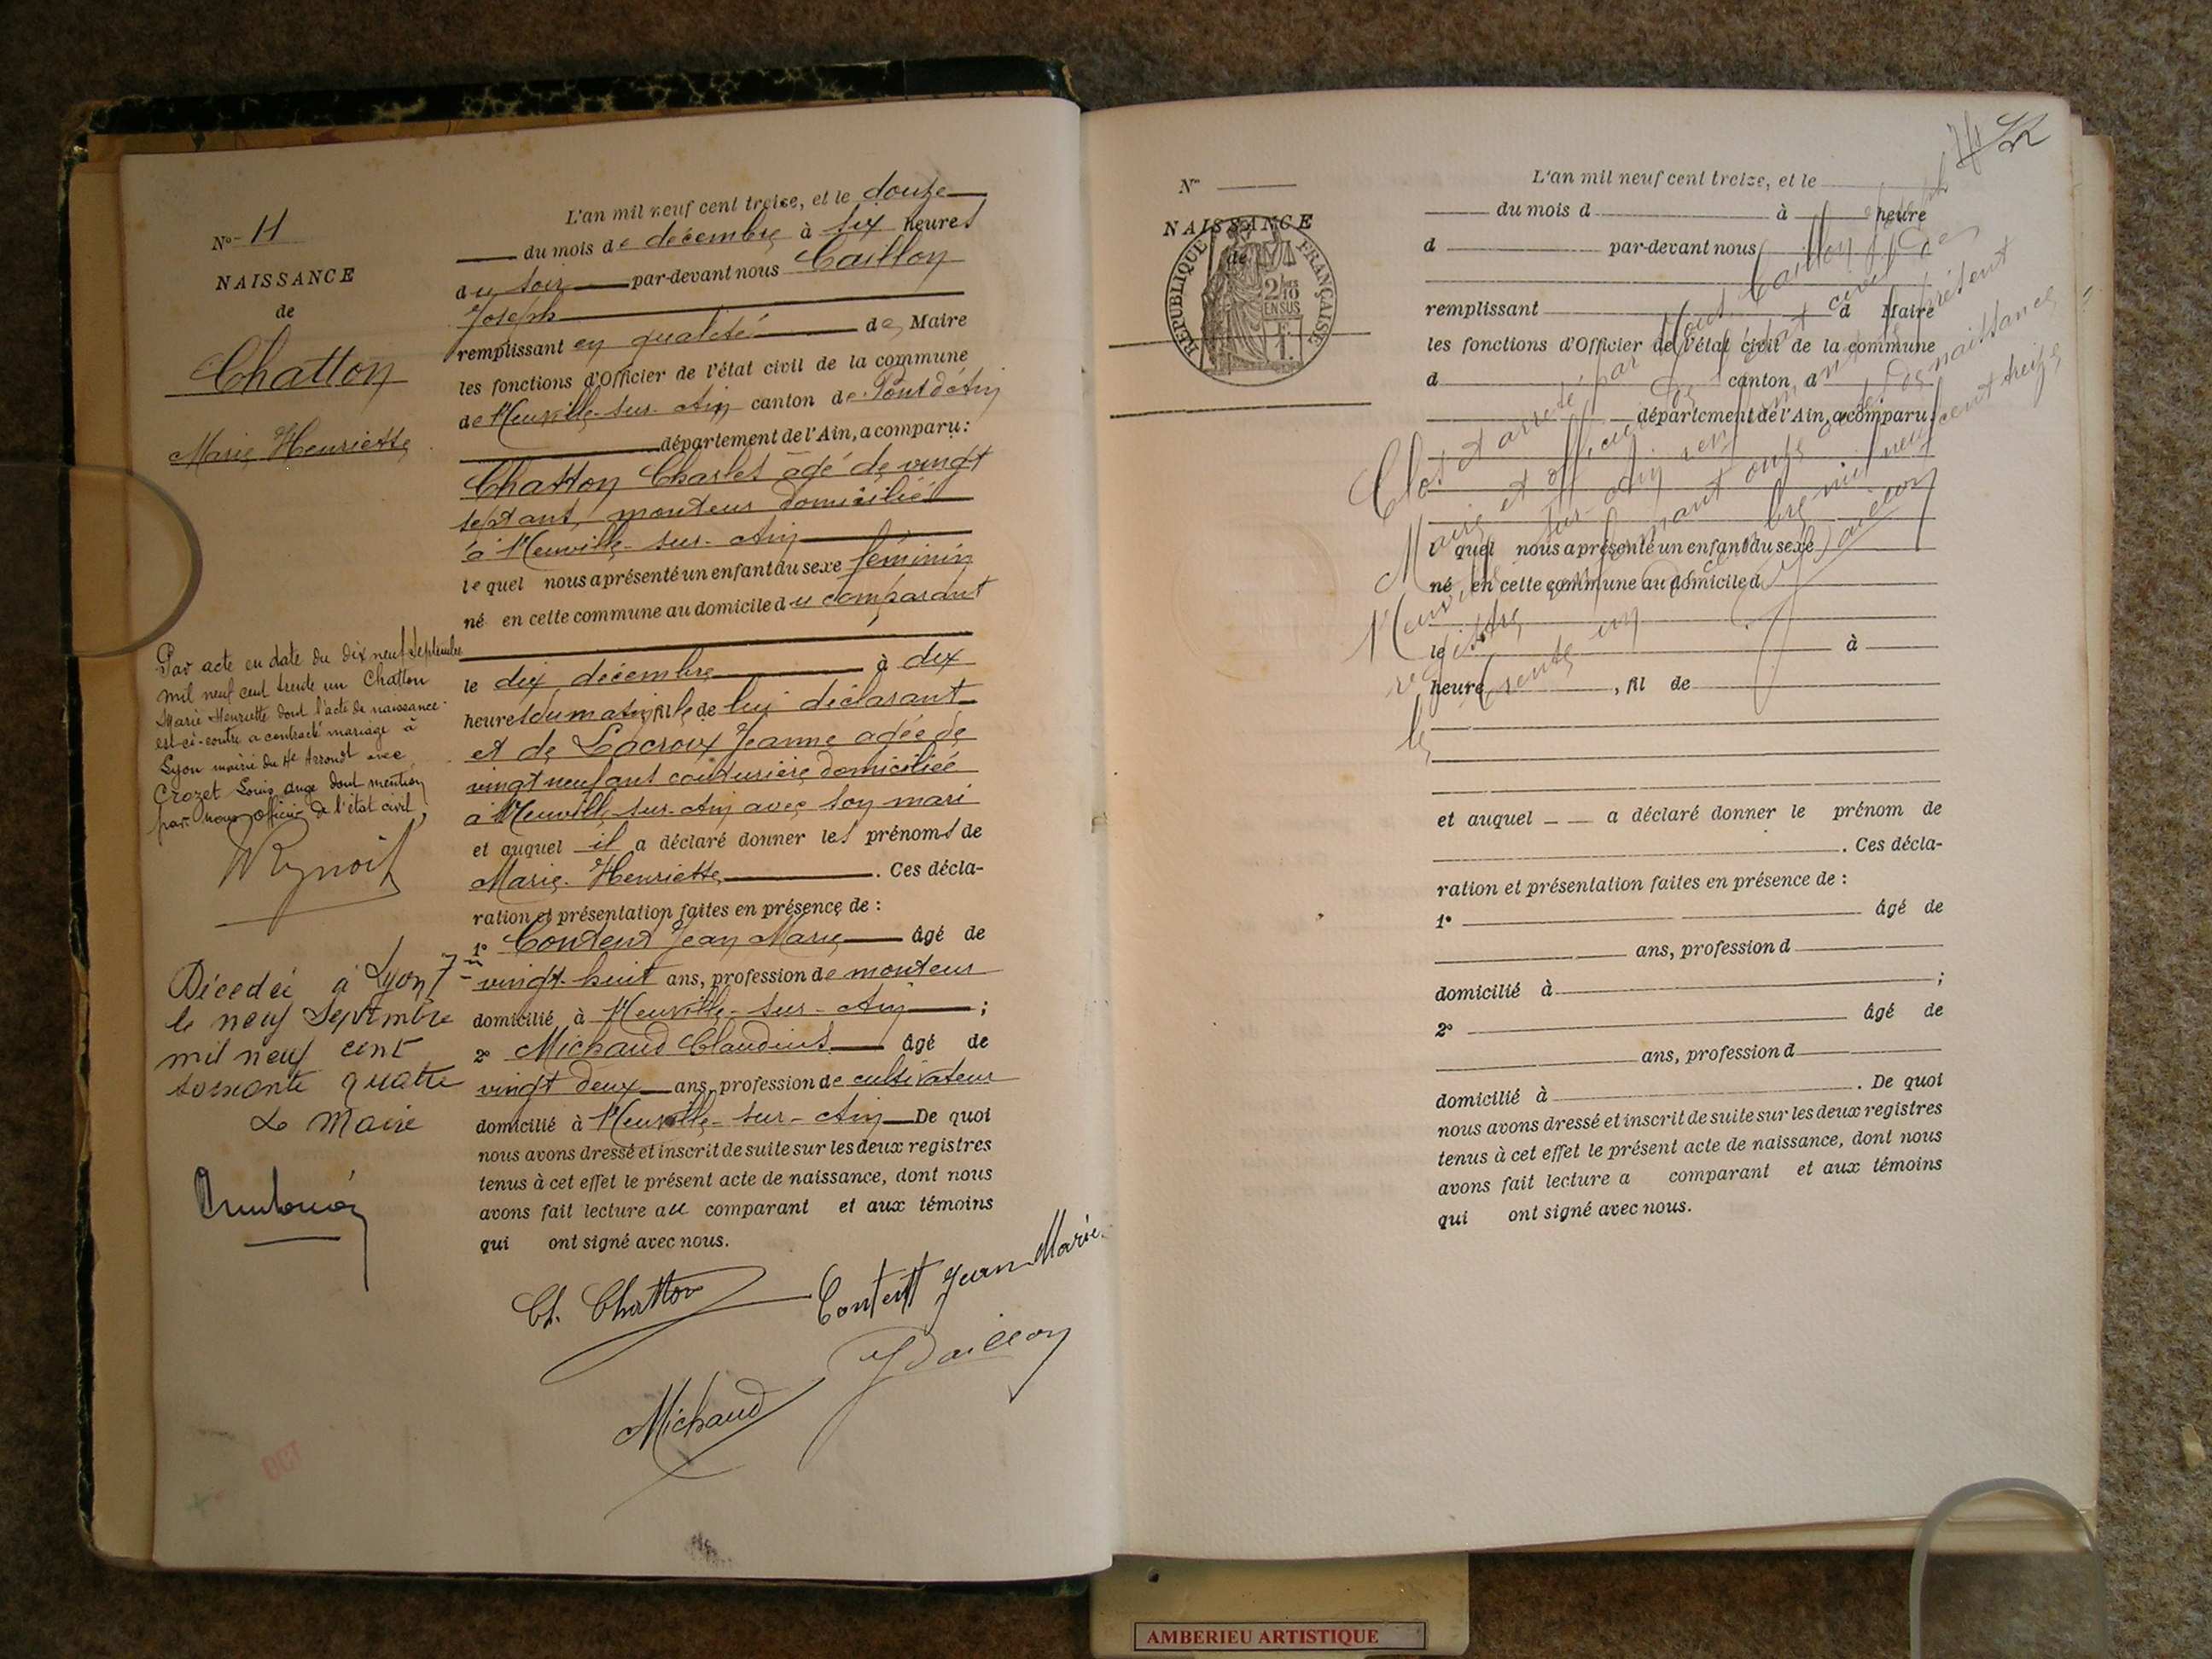 N° 11
NAISSANCE
de
Chatton
Marie Henriette
Par acte en date du dix neuf Septembre
mil neuf cent trente un Chatton
Marie Henriette dont l'acte de naissance
est ci-contre a contracté mariage à
Lyon mairie du Arrondt avec
Crozet Louis Ange dont mention
par nous officier de l'état civil
Décédée à Lyon 7
le neuf Septembre
mil neuf cent
soixante quatre
Le Maire
L'an mil neuf cent treize, et le douze
du mois de décembre à six heures
du soir par-devant nous Caillon
Joseph
remplissant en qualité de Maire
les fonctions d'Officier de l'état civil de la commune
de Neuville-sur-Ain canton de Pont d'Ain
département de l'Ain, a comparu :
Chatton Charles âgé de vingt
sept ans, monteur domicilié
à Neuville-sur-Ain
lequel nous a présenté un enfant du sexe féminin
né en cette commune au domicile du comparant
le dix décembre à dix
heures du matin, fille de lui déclarant
et de Lacroix Jeanne agée de
vingt neuf ans couturière domiciliée
à Neuville-sur-Ain avec son mari
et auquel il a déclaré donner les prénoms de
Marie Henriette. Ces décla-
ration et présentation faites en présence de :
1° Content Jean Marie âgé de
vingt-huit ans, profession de monteur
domicilié à Neuville-sur-Ain ;
2° Michaud Claudius âgé de
vingt deux ans, profession de cultivateur
domicilié à Neuville-sur-Ain De quoi
nous avons dressé et inscrit de suite sur les deux registres
tenus à cet effet le présent acte de naissance, dont nous
avons fait lecture au comparant et aux témoins
qui ont signé avec nous.
Ch. Chatton
Content Jean Marie
J Caillon
Michaud
OCT
N°
NAISSANCE
de
RÉPUBLIQUE FRANÇAISE
2/10
EN SUS
L'an mil neuf cent treize, et le
du mois d à heure
d par-devant nous
remplissant d Maire
les fonctions d'Officier de l'état civil de la commune
d canton, d
département de l'Ain, a comparu :
l quel nous a présenté un enfant du sexe
né en cette commune au domicile d
le à
heure , fil de
et auquel a déclaré donner le prénom de
. Ces décla-
ration et présentation faites en présence de :
1° âgé de
ans, profession d
domicilié à ;
2° âgé de
ans, profession d
domicilié à . De quoi
nous avons dressé et inscrit de suite sur les deux registres
tenus à cet effet le présent acte de naissance, dont nous
avons fait lecture a comparant et aux témoins
qui ont signé avec nous.
Clos et arrêté par Nous Caillon Joseph
Maire et officier de l'état civil de
Neuville-sur-Ain le présent
registre contenant onze actes de naissance
le décembre mil neuf cent treize
J Caillon
AMBERIEU ARTISTIQUE